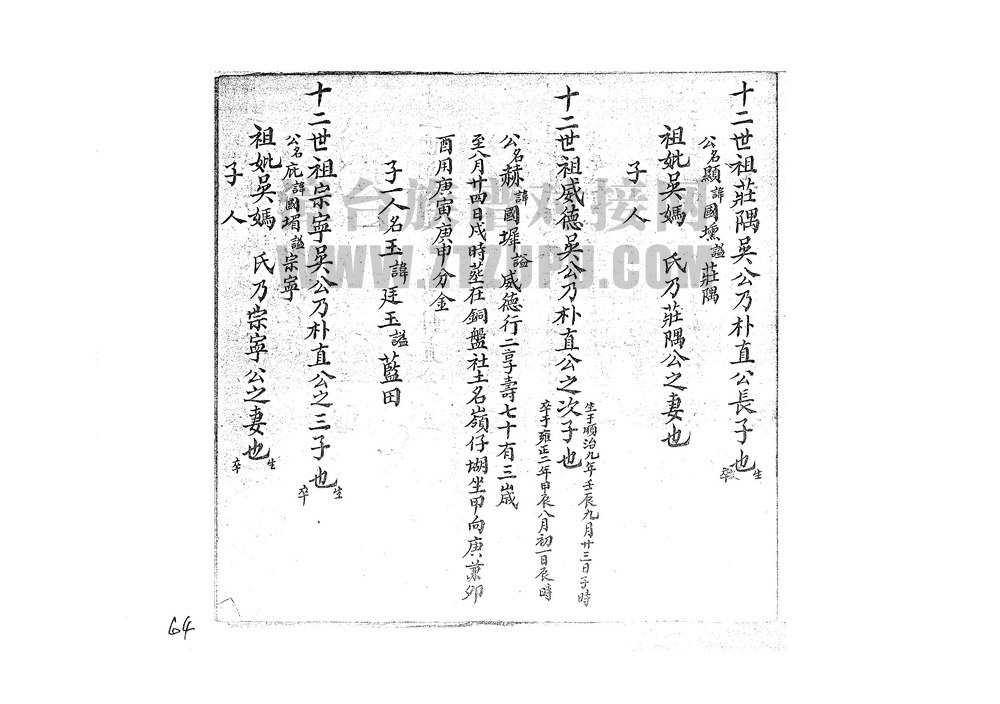 十二世祖莊隅吳公乃朴直公長子也 生 卒
公名顯諱國壎謚莊隅
祖妣吳媽 氏乃莊隅公之妻也
子 人
十二世祖威德吳公乃朴直公之次子也 生于順治九年壬辰九月廿三日子時 卒于雍正二年甲辰八月初一日辰時
公名赫諱國墀謚威德行二享壽七十有三歲
至八月廿四日戌時塟在銅盤社土名嶺仔坳坐甲向庚兼卯
酉用庚寅庚申分金
子一人名玉諱廷玉謚藍田
十二世祖宗寧吳公乃朴直公之三子也 生 卒
公名庇諱國堳謚宗寧
祖妣吳媽 氏乃宗寧公之妻也 生 卒
子 人
台族谱对接网
WWW.ZTZUPU.COM
64